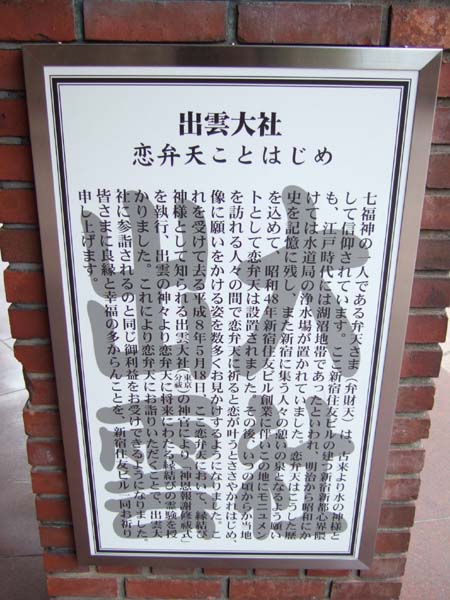 出雲大社
恋弁天ことはじめ
七福神の一人である弁天さま（弁財天）は、古来より水の神様と
して信仰されています。ここ新宿住友ビルの建つ新都心界隈
も、江戸時代には湖沼地帯であったといわれ、明治から昭和にか
けては水道局の浄水場が置かれていました。恋弁天はこうした歴
史を記憶に残し、また新宿に集う人々の憩いの泉となるよう願い
を込めて、昭和48年新宿住友ビル創業に伴いこの地にモニュメン
トとして恋弁天は設置されました。その後いつの頃からか当地
を訪れる人々の間で恋弁天に祈ると恋が叶うとささやかれはじめ、
像に願いをかける姿を数多くお見かけするようになりました。こ
れを受けて去る平成8年5月18日、ここ恋弁天において、縁結び
神様として知られる出雲大社（東京分祠）の神官により、「神恩報謝修祓式」
を執行、出雲の神々より恋弁天に将来にわたる縁結びの霊験を授
かりました。これにより恋弁天にお詣りいただくことで、出雲大
社に参詣されるのと同じ御利益をお受けできるようになりました。
皆さまに良縁と幸福の多からんことを、新宿住友ビル一同お祈り
申し上げます。
出雲大社